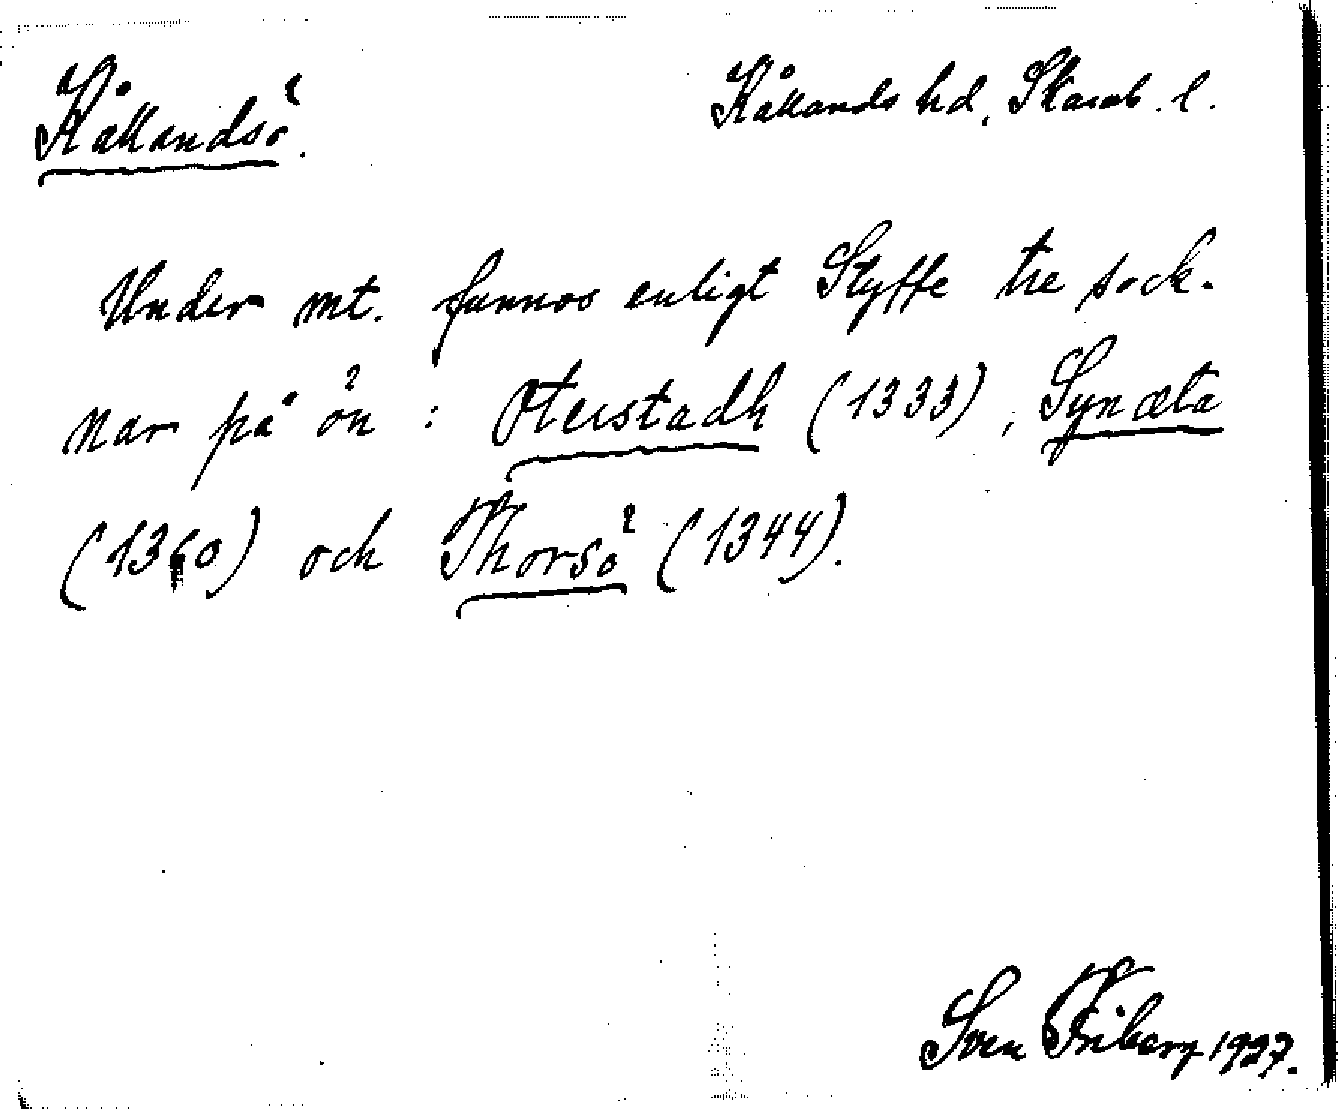 Kållandsö.
Kållands hd, Skarab. l.
Under mt. funnos enligt Styffe tre sock-
nar på ön : Oterstadh (1333), Synæta
(1360) och Thorsö (1344).
Sven Friberg 1927.